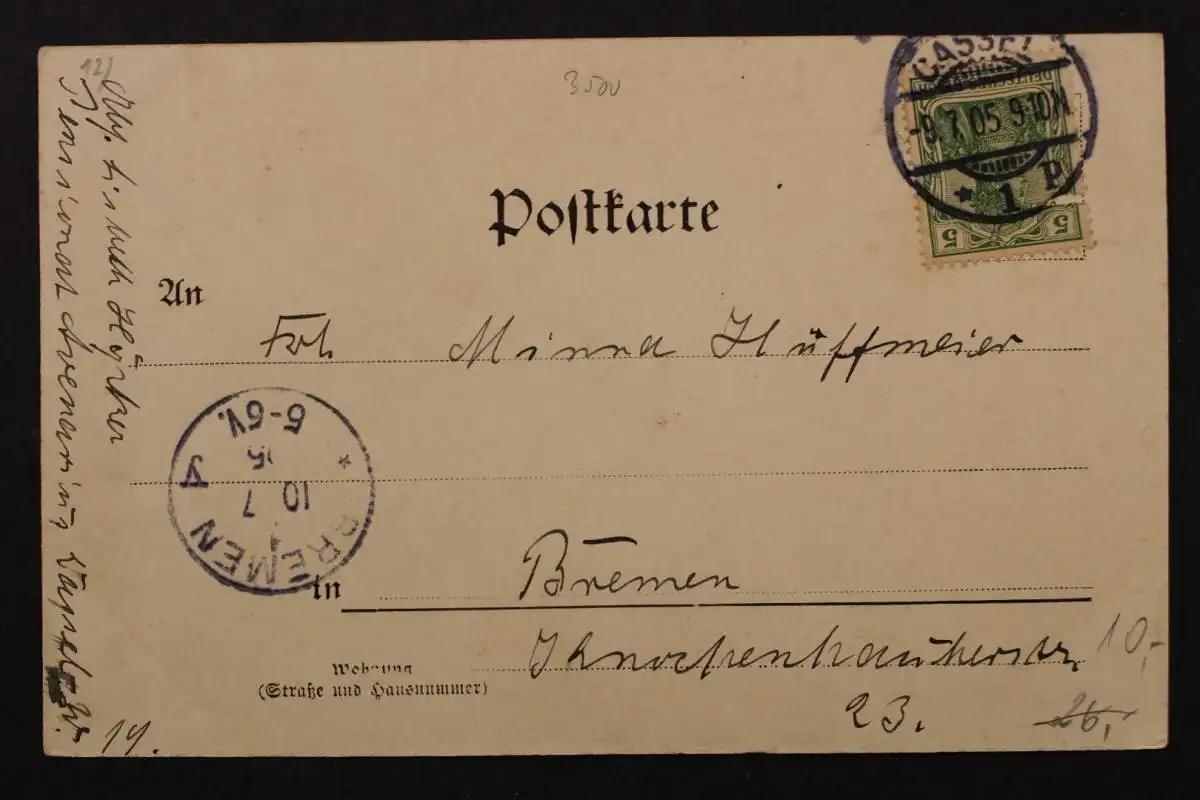 12)
3500
CASSEL
-9.7.05 9-10N
* 1 p
DEUTSCHES REICH
5 5
Postkarte
An
Frl. Minna Hüffmeier
BREMEN
10 7
5-6V.
*
in Bremen
Wohnung
(Straße und Hausnummer)
Knochenhauerstr.
23.
10,-
26,
Abs. Lisbeth
Pensionat Avenarius Kassel-W.
14.